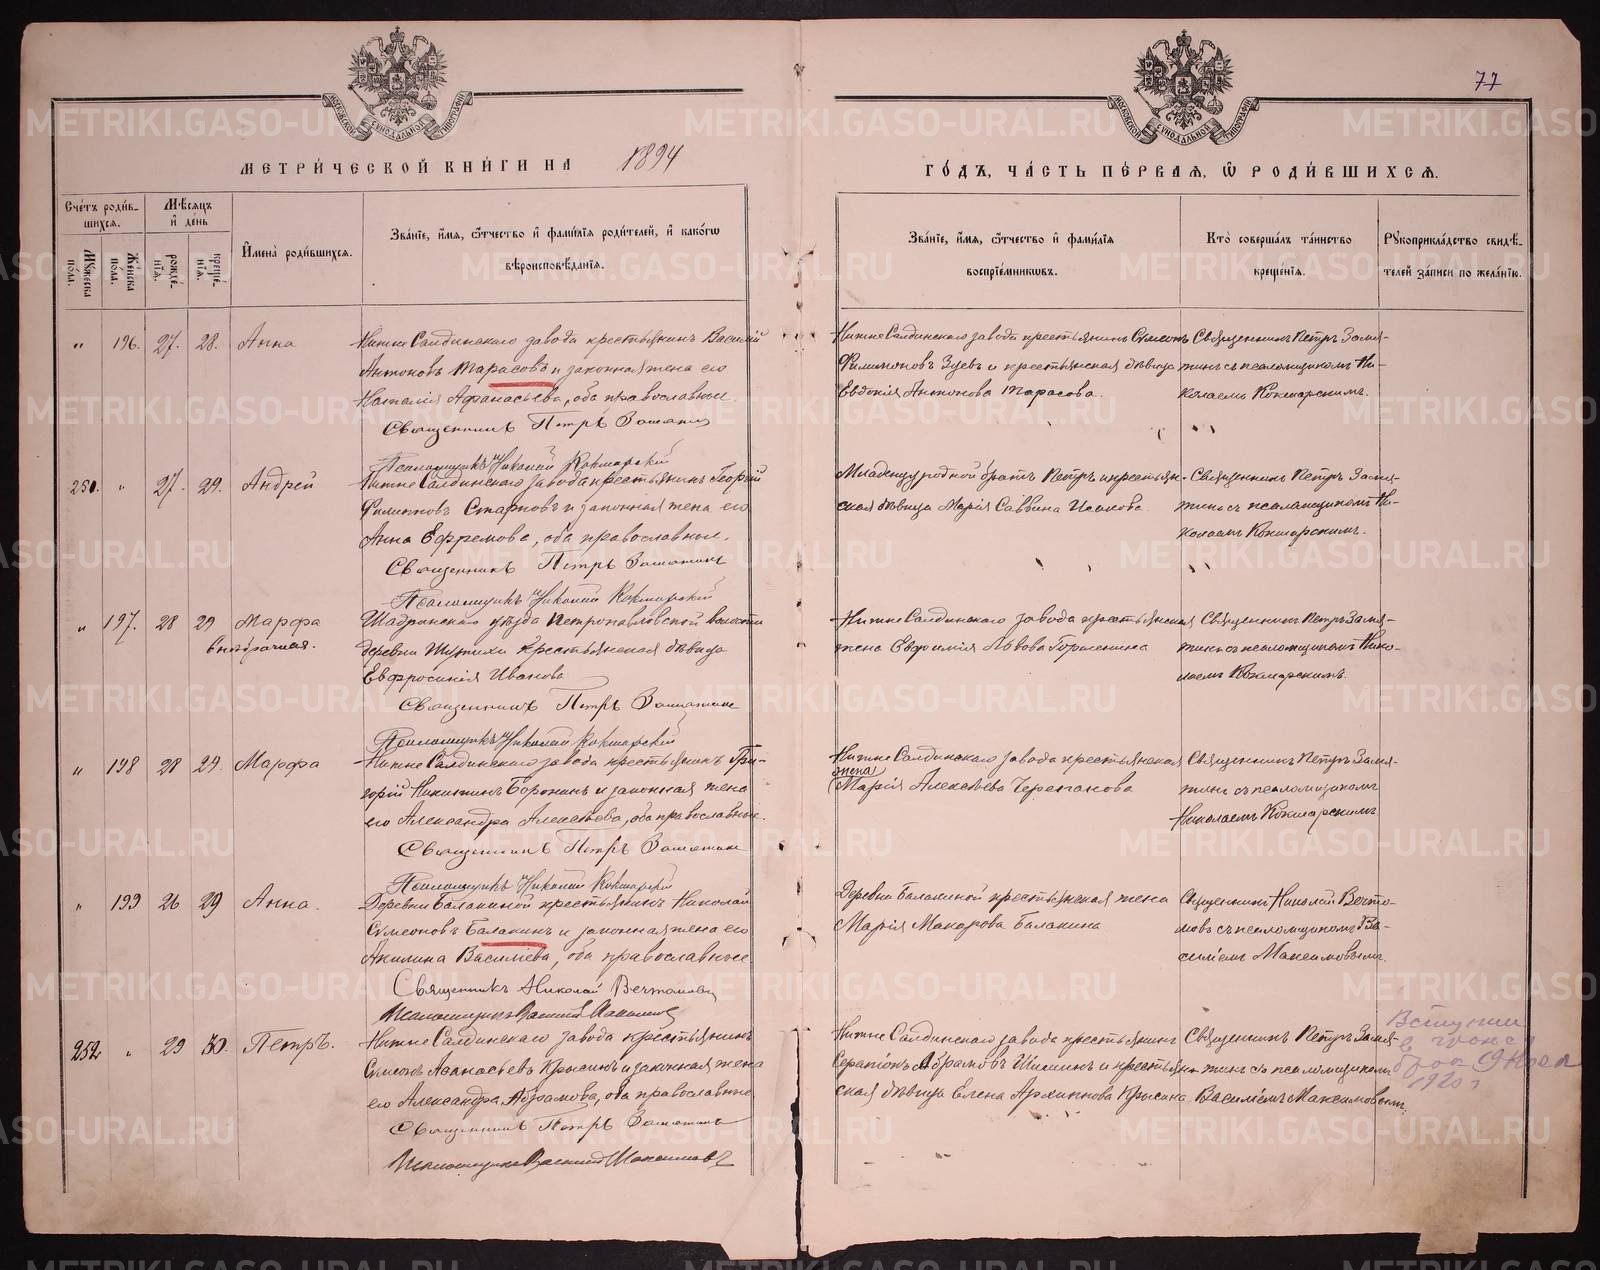 77
МЕТРИ́ЧЕСКОЙ КНИ́ГИ НА 1894
ГО́ДЪ, ЧА́СТЬ ПЕ́РВАЯ, Ѿ РОДИ́ВШИХСЯ.
Сче́тъ роди́в-
шихся.
Мѣ́сяцъ
и҆ де́нь
Мужеска по́ла.
Же́нска по́ла.
рожде́-
нїя.
креще́-
нїя.
И҆мена̀ роди́вшихся.
Зва́нїе, и҆́мя, ѻ҆́тчество и҆ фами́лїя роди́телей, и҆ како́гѡ
вѣроисповѣ́данїя.
Зва́нїе, и҆́мя, ѻ҆́тчество и҆ фами́лїя
воспрїе́мникѡвъ.
Кто̀ соверша́лъ та́инство
креще́нїя.
Рукоприкла́дство свидѣ́-
телей за́писи по жела́нїю.
" 196. 27. 28. Анна
Нижне Салдинскаго завода крестьянинъ Василій
Антоновъ Тарасовъ и законная жена его
Наталія Афанасьева, оба православные.
Священникъ Петръ Замятин
Псаломщикъ Николай Кокшарский
Нижне Салдинскаго завода крестьянинъ Симеонъ
Филимоновъ Зуевъ и крестьянская дѣвица
Евдокія Антонова Тарасова.
Священникъ Петръ Замя-
тинъ съ псаломщикомъ Ни-
колаемъ Кокшарскимъ.
250. " 27. 29. Андрей
Нижне Салдинскаго завода крестьянинъ Георгій
Филиппов Старковъ и законная жена его
Анна Ефремова, оба православные.
Священникъ Петръ Замятинъ
Псаломщикъ Николай Кокшарский
Младенцу родной братъ Петръ и крестьян-
ская дѣвица Марія Саввина Исакова.
Священникъ Петръ Замя-
тинъ съ псаломщикомъ Ни-
колаемъ Кокшарскимъ.
" 197. 28 29 Марфа
внѣбрачная.
Шадринскаго уѣзда Петропавловской волости
деревни крестьянская дѣвица
Евфросинія Иванова
Священникъ Петръ Замятинъ
Псаломщикъ Николай Кокшарский
Нижне Салдинскаго завода крестьянская
жена Евфимія Львова
Священникъ Петръ Замя-
тинъ съ псаломщикомъ Нико-
лаемъ Кокшарскимъ.
" 198 28 29. Марфа
Нижне Салдинскаго завода крестьянинъ Гри-
горій Никитинъ Боронинъ и законная жена
его Александра Алексѣева, оба православные.
Священникъ Петръ Замятинъ
Псаломщикъ Николай Кокшарский
Нижне Салдинскаго завода крестьянская
жена
Марія Алексѣева Черепанова
Священникъ Петръ Замя-
тинъ съ псаломщикомъ
Николаемъ Кокшарскимъ
" 199 26 29 Анна.
Деревни Балакиной крестьянинъ Николай
Симеоновъ Балакинъ и законная жена его
Акилина Василіева, оба православные
Священникъ Николай Вечтомовъ
Псаломщикъ Василій Максимовъ
Деревни Балакиной крестьянская жена
Марія Макарова Балакина
Священникъ Николай Вечто-
мовъ съ псаломщикомъ Ва-
силіемъ Максимовымъ.
252 " 29 30. Петръ.
Нижне Салдинскаго завода крестьянинъ
Симеонъ Афанасьевъ Крысинъ и законная жена
его Александра Абрамова, оба православные
Священникъ Петръ Замятинъ
Псаломщикъ Василій Максимовъ
Нижне Салдинскаго завода крестьянинъ
Серапіонъ Абрамовъ Шишинъ и крестьян-
ская дѣвица Елена Архиппова Крысина
Священникъ Петръ Замя-
тинъ съ псаломщикомъ
Василіемъ Максимовымъ.
Вступил
в гражд
брак
1920 г
METRIKI.GASO-URAL.RU